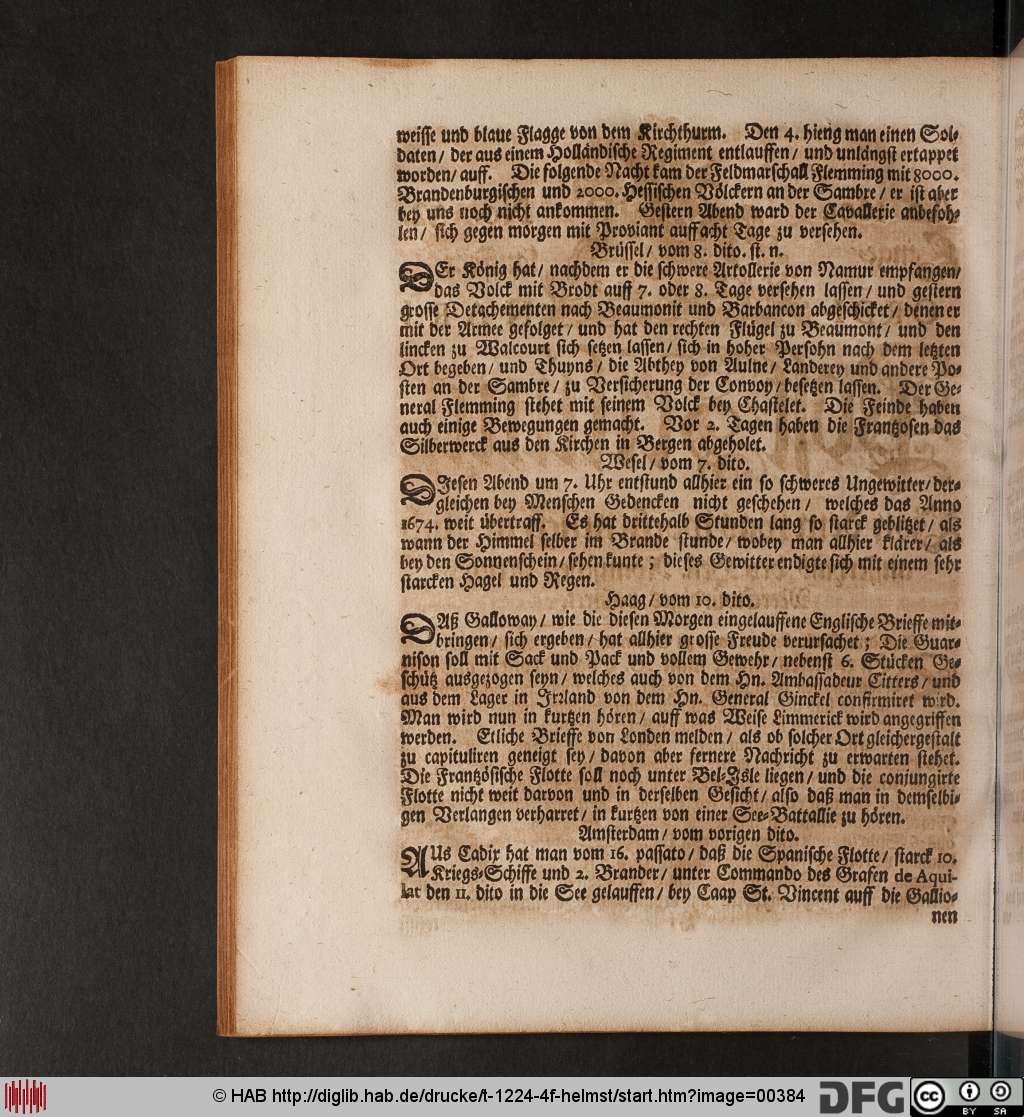 weisse und blaue Flagge von dem Kirchthurm. Den 4. hieng man einen Sol-
daten/ der aus einem Holländische Regiment entlauffen/ und unlängst ertappet
worden/ auff. Die folgende Nacht kam der Feldmarschall Flemming mit 8000.
Brandenburgischen und 2000. Hessischen Völckern an der Sambre/ er ist aber
bey uns noch nicht ankommen. Gestern Abend ward der Cavallerie anbefoh-
len/ sich gegen morgen mit Proviant auff acht Tage zu versehen.
Brüssel/ vom 8. dito. st. n.
DEr König hat/ nachdem er die schwere Artollerie von Namur empfangen/
das Volck mit Brodt auff 7. oder 8. Tage versehen lassen/ und gestern
grosse Detachementen nach Beaumonit und Barbancon abgeschicket/ denen er
mit der Armee gefolget/ und hat den rechten Flügel zu Beaumont/ und den
lincken zu Walcourt sich setzen lassen/ sich in hoher Persohn nach dem letzten
Ort begeben/ und Thuyns/ die Abthey von Aulne/ Landerey und andere Po-
sten an der Sambre/ zu Versicherung der Convoy/ besetzen lassen. Der Ge-
neral Flemming stehet mit seinem Volck bey Chastelet. Die Feinde haben
auch einige Bewegungen gemacht. Vor 2. Tagen haben die Frantzosen das
Silberwerck aus den Kirchen in Bergen abgeholet.
Wesel/ vom 7. dito.
DIesen Abend um 7. Uhr entstund allhier ein so schweres Ungewitter/ der-
gleichen bey Menschen Gedencken nicht geschehen/ welches das Anno
1674. weit übertraff. Es hat drittehalb Stunden lang so starck geblitzet/ als
wann der Himmel selber im Brande stunde/ wobey man allhier klärer/ als
bey den Sonnenschein/ sehen kunte; dieses Gewitter endigte sich mit einem sehr
starcken Hagel und Regen.
Haag/ vom 10. dito.
DAß Galloway/ wie die diesen Morgen eingelauffene Englische Brieffe mit-
bringen/ sich ergeben/ hat allhier grosse Freude verursachet; Die Guar-
nison soll mit Sack und Pack und vollem Gewehr/ nebenst 6. Stücken Ge-
schütz ausgezogen seyn/ welches auch von dem Hn. Ambassadeur Citters/ und
aus dem Lager in Irrland von dem Hn. General Ginckel confirmiret wird.
Man wird nun in kurtzen hören/ auff was Weise Limmerick wird angegriffen
werden. Etliche Brieffe von Londen melden/ als ob solcher Ort gleichergestalt
zu capituliren geneigt sey/ davon aber fernere Nachricht zu erwarten stehet.
Die Frantzösische Flotte soll noch unter Bel-Isle liegen/ und die conjungirte
Flotte nicht weit darvon und in derselben Gesicht/ also daß man in demselbi-
gen Verlangen verharret/ in kurtzen von einer See-Battallie zu hören.
Amsterdam/ vom vorigen dito.
AUs Cadix hat man vom 16. passato/ daß die Spanische Flotte/ starck 10.
Kriegs-Schiffe und 2. Brander/ unter Commando des Grafen de Aqui-
lar den 11. dito in die See gelauffen/ bey Caap St. Vincent auff die Gallio-
nen
© HAB http://diglib.hab.de/drucke/t-1224-4f-helmst/start.htm?image=00384
DFG
cc
BY SA